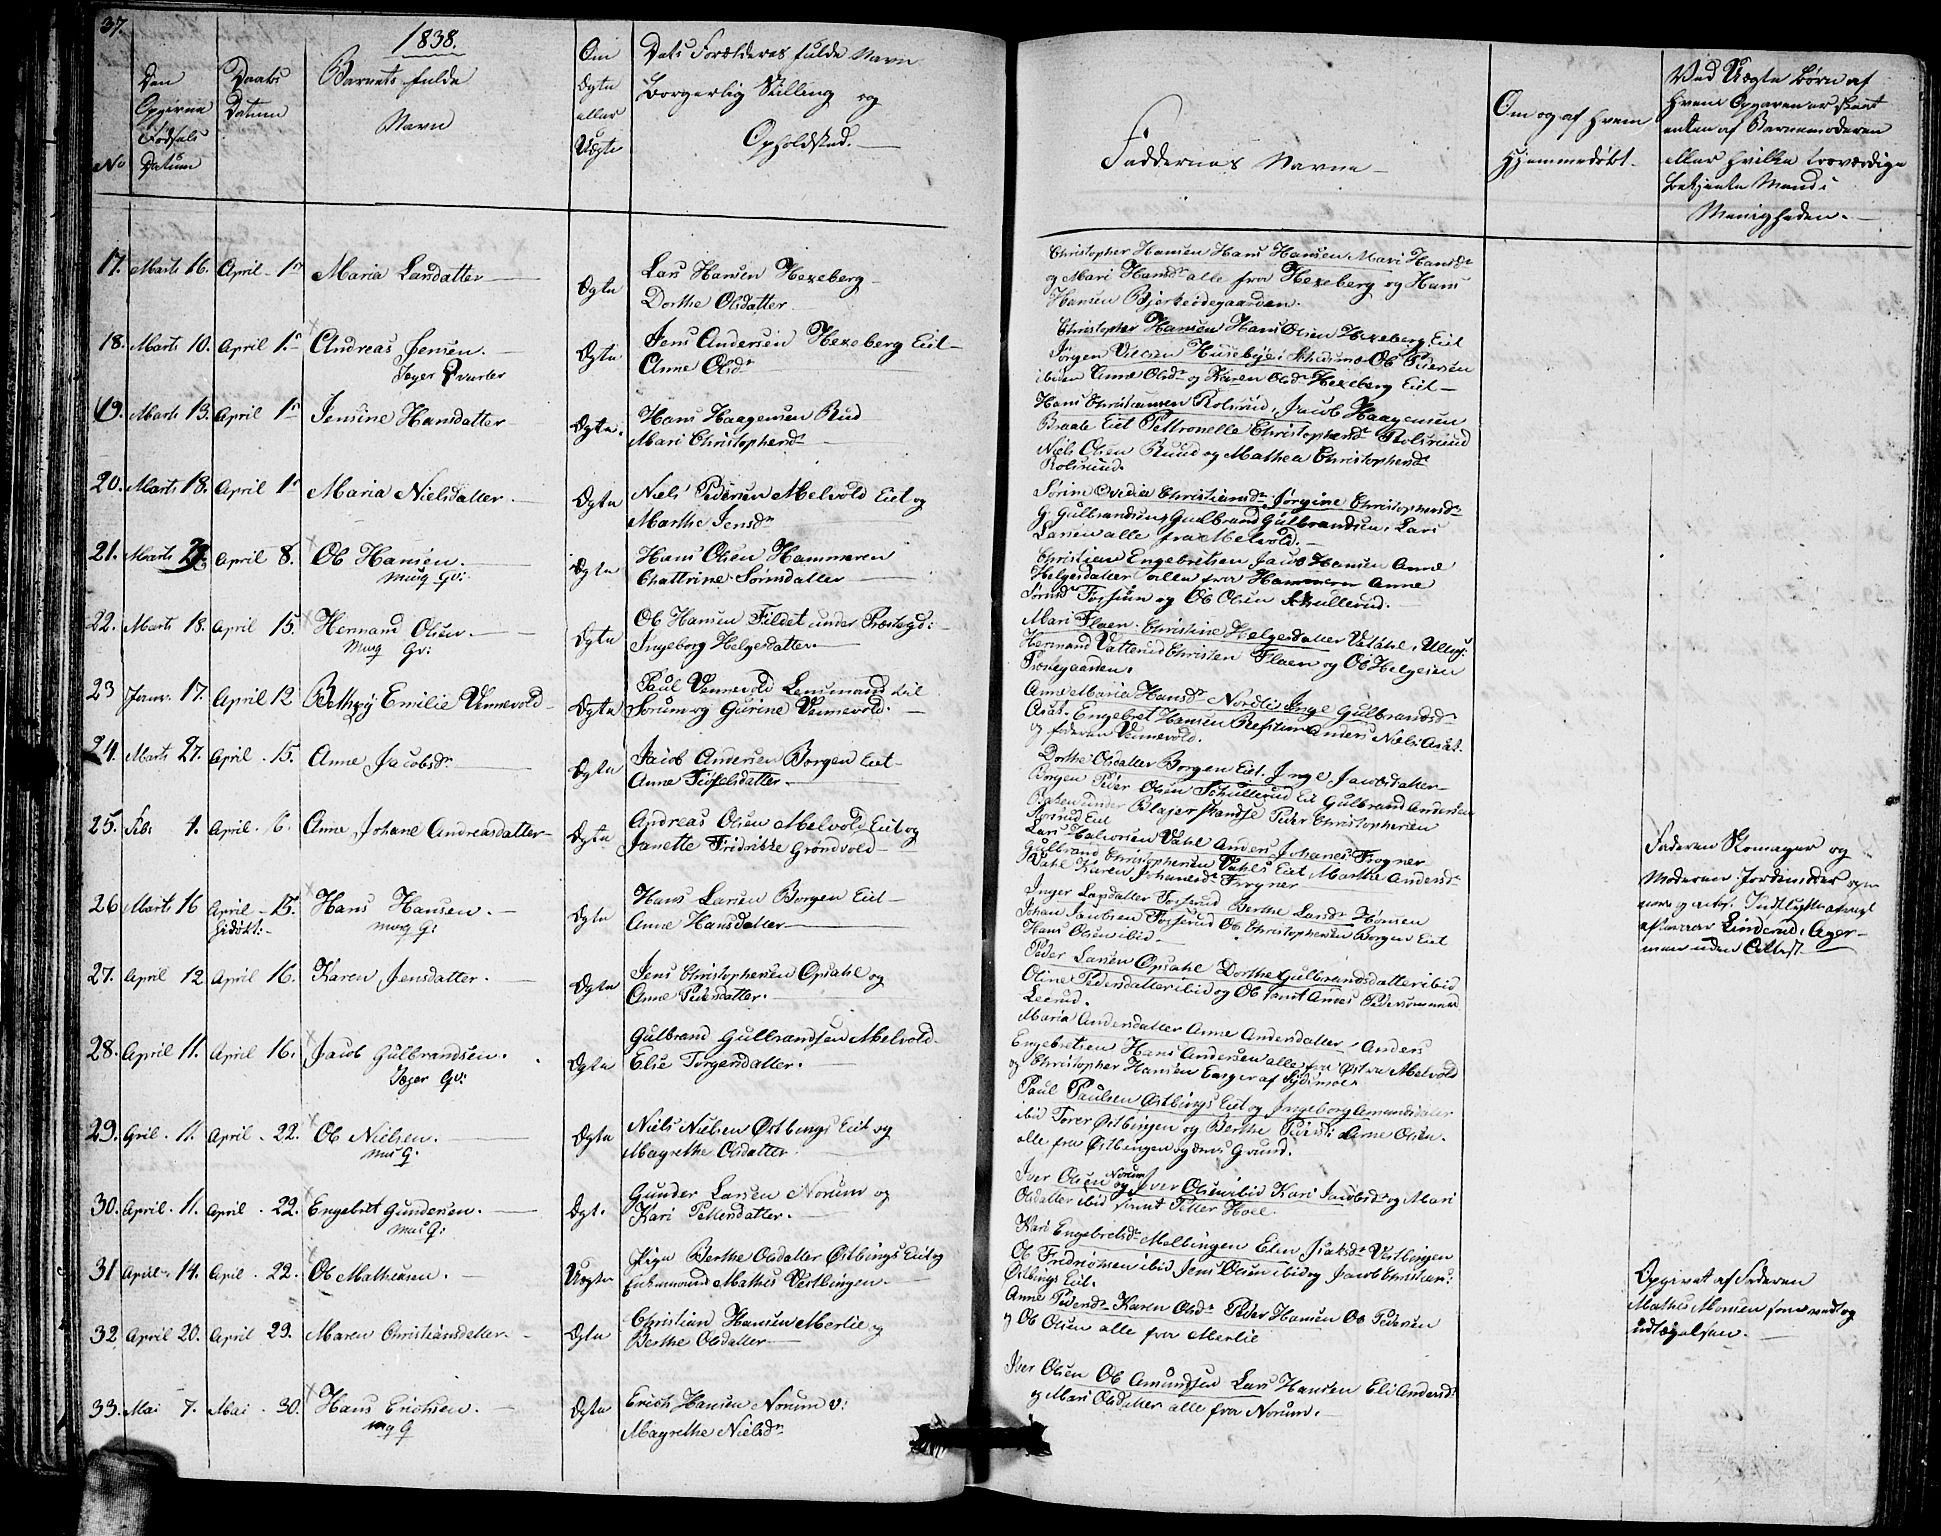 37.
1838.
No
Den
Opgivne
Fødsels
Datum
Daabs
Datum
Barnets fulde
Navn
Om
Ægte
eller
Uægte
Dets Forældres fulde Navn
Borgerlig Stilling og
Opholdsted.
Faddernes Navne
Om og af hvem
Hjemmedøbt.
Ved Uægte Børn af
hvem Opgaven er skeet
enten af Barnemoderen
eller hvilke troværdige
betjente Mand i
Menigheden.
17. Marts 16. April 1ste Maria Larsdatter Ægte
Lars Hansen Hexeberg
Dorthe Olsdatter
Christopher Hansen Hans Hansen Mari Hansdr
og Mari Hansdr alle fra Hexeberg og Hans
Hansen Bjerkeødegaarden.
18. Marts 10. April 1. Andreas Jensen. Ægte
Jens Andersen Hexeberg Eiet
Anne Olsdr
Christopher Hansen Hans Olsen Hexeberg Eiet
Jørgen Husebye Ole Pedersen
ibidem Anne Olsdr og Karen Olsdr Hexeberg Eiet
19. Marts 13. April 1ste Jensine Hansdatter Ægte.
Hans Haagensen Rud
Mari Christophersdr
Hans Christiansen Rolsrud, Jacob Haagensen
Braate Eiet Pettronelle Christophersdr Rolsrud
Niels Olsen Ruud og Mathea Christophersdr
Rolsrud.
20. Marts 18. April 1ste Maria Nielsdatter. Ægte
Niels Pedersen Melvold Eiet og
Marthe Jensdr
Sørine Ovedia Christiansdr Jørgine Christophersdr
G Gulbrandsen Gulbrand Gulbrandsen, Lars
Larsen alle fra Melvold.
21. Marts April 8. Ole Hansen. Ægte
Hans Olsen Hammeren
Chattrine Sørensdatter
Christian Engebretsen Jacob Hansen Anne
Helgesdatter alle fra Hammern Anne
og Ole Olsen Skullerud.
22. Marts 18. April 15. Hermand Olsen. Ægte
Ole Hansen Fildet under Præstegd:
Ingeborg Helgesdatter.
Mari Flaen. Christine Helgesdatter
Hermand Vatterud Christen Flaen og Ole Helgesen
Præstegaarden.
23 Janv. 17. April 12 Bethzy Emilie Vennevold Ægte
Paul Vennevold Lensmand til
Sørum og Gurine Vennevold.
Anne Maria Hansdr Nordlie Inge Gulbrandsdr
Asak. Engebret Hansen Anders Niels Asak
og faderen Vennevold.
24. Marts 27. April 15. Anne Jacobsdr Ægte
Jacob Andersen Borgen Eiet
Anne Tidfelsdatter.
Dorthe Olsdatter Borgen Eiet. Inge Jacobsdatter
Borgen Peder Olsen Schullerud Eiet Gulbrand Andersen
under Blajer skandse Peder Christophersen
Eiet
25. Feb: 4. April. 6. Anne Johane Andreasdatter Ægte
Andreas Olsen Melvold Eiet og
Janette Fridrikke Grøndvold
Lars Halvorsen Vahl Anders Johanes Frogner
Gulbrand Christophersen Vahls Eiet Marthe Andersdr
Vahl Karen Johanesdr Frogner
Faderen Skomager og
Moderen Jordemoder
Linderud, Ager-
uden Attest
26 Marts 16 April 15. Hans Hansen. Ægte
Hans Larsen Borgen Eiet
Anne Hansdatter
Inger Larsdatter Fosserud Berthe Larsdr Hønsen
Johan Jacobsen Fosserud Ole Christophersen Borgen Eiet
Hans Olsen ibid
27. April 12 April 16. Karen Jensdatter. Ægte
Jens Christophersen Opsahl og
Anne Pedersdatter.
Peder Larsen Opsahl Dorthe Gulbrandsdatter ibid
Oline Pedersdatter ibid og Ole samt Peder
Leerud.
28. April 11. April 16. Jacob Gulbrandsen. Ægte
Jæger Gv:
Gulbrand Gulbrandsen Melvold
Else Torgersdatter.
Maria Andersdatter Anne Andersdatter, Anders
Engebretsen Hans Andersen alle fra Østre Melvold
og Christopher Hansen
29. April. 11. April. 22. Ole Nielsen. Ægte
Niels Nielsen Østbings Eiet og
Magrethe Olsdatter
Paul Paulsen Østbings Eiet og Ingeborg Amundsdatter
ibid Torer Østbingen og Berthe Arne Olsen.
alle fra Østbingen og dens Grund.
30. April. 11. April. 22. Engebret Gundersen. Ægt.
Gunder Larsen Norum og
Kari Pettersdatter.
Iver Olsen Norum og Iver Olsen ibid Kari Jacobsdr og Mari
Olsdatter ibid samt Petter Hoel.
31 April 14. April. 22. Ole Mathisen. Uægte
Pigen Berthe Olsdatter Østbings Eiet og
Enkemand Mathis Vestbingen.
Kari Engebretsdr Melbingen Elen Isaksdr Vestbingen
Ole Fredriksen ibid Jens Olsen ibid og Jacob Christians:
Østbings Eiet.
Opgivet af Faderen
Mathis Monsen som ved
udlæggelsen.
32. April 20. April 29. Maren Christiansdatter Ægte
Christian Hansen Merlie og
Berthe Olsdatter
Anne Pedersdr Karen Olsdr Peder Hansen Ole Pedersen
og Ole Olsen alle fra Merlie
33. Mai 7. Mai 30. Hans Erichsen. Ægte
Erich Hansen Norum
Magrethe Nielsdr
Iver Olsen Ole Amundsen Lars Hansen Eli Andersdr
og Mari Olsdatter alle fra Norum.